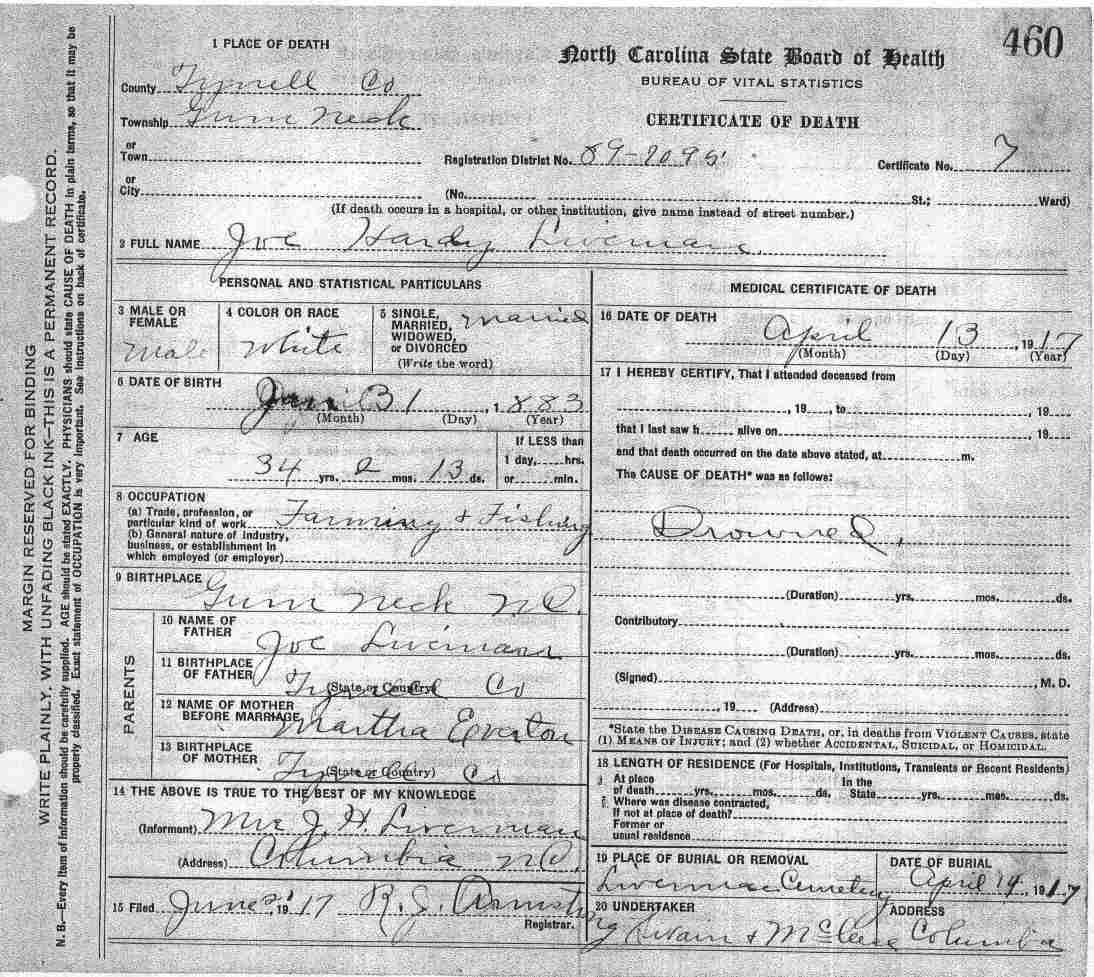 460
1 PLACE OF DEATH
North Carolina State Board of Health
BUREAU OF VITAL STATISTICS
CERTIFICATE OF DEATH
County Tyrrell Co
Township Gum Neck
or
Town
Registration District No. 89-7095
Certificate No. 7
or
City (No. St.; Ward)
(If death occurs in a hospital, or other institution, give name instead of street number.)
2 FULL NAME Joe Hardy Liverman
PERSONAL AND STATISTICAL PARTICULARS
3 MALE OR FEMALE Male
4 COLOR OR RACE White
5 SINGLE, MARRIED, WIDOWED, or DIVORCED (Write the word) Married
6 DATE OF BIRTH 31, 1883
(Month) (Day) (Year)
7 AGE
34 yrs. 2 mos. 13 ds.
If LESS than
1 day, hrs.
or min.
8 OCCUPATION
(a) Trade, profession, or
particular kind of work Farming & Fishing
(b) General nature of industry,
business, or establishment in
which employed (or employer)
9 BIRTHPLACE
Gum Neck NC.
PARENTS
10 NAME OF FATHER Joe Liverman
11 BIRTHPLACE OF FATHER (State or Country) Tyrrell Co
12 NAME OF MOTHER BEFORE MARRIAGE Martha Everton
13 BIRTHPLACE OF MOTHER (State or Country) Tyrrell Co
14 THE ABOVE IS TRUE TO THE BEST OF MY KNOWLEDGE
(Informant) Mrs J. H. Liverman
(Address) Columbia NC
15 Filed June 1917 R. J. Armstrong
Registrar.
MEDICAL CERTIFICATE OF DEATH
16 DATE OF DEATH
April 13, 1917
(Month) (Day) (Year)
17 I HEREBY CERTIFY, That I attended deceased from
, 19 , to , 19
that I last saw h alive on , 19
and that death occurred on the date above stated, at m.
The CAUSE OF DEATH* was as follows:
Drowned.
(Duration) yrs. mos. ds.
Contributory
(Duration) yrs. mos. ds.
(Signed) , M. D.
, 19 (Address)
*State the DISEASE CAUSING DEATH, or, in deaths from VIOLENT CAUSES, state
(1) MEANS OF INJURY; and (2) whether ACCIDENTAL, SUICIDAL, or HOMICIDAL.
18 LENGTH OF RESIDENCE (For Hospitals, Institutions, Transients or Recent Residents)
At place of death yrs. mos. ds. In the State yrs. mos. ds.
Where was disease contracted,
If not at place of death?
Former or
usual residence
19 PLACE OF BURIAL OR REMOVAL Liverman Cemetery
DATE OF BURIAL April 14, 1917
20 UNDERTAKER Swain & McClees
ADDRESS Columbia
MARGIN RESERVED FOR BINDING
WRITE PLAINLY, WITH UNFADING BLACK INK—THIS IS A PERMANENT RECORD.
N. B.—Every item of information should be carefully supplied. AGE should be stated EXACTLY. PHYSICIANS should state CAUSE OF DEATH in plain terms, so that it may be
properly classified. Exact statement of OCCUPATION is very important. See instructions on back of certificate.